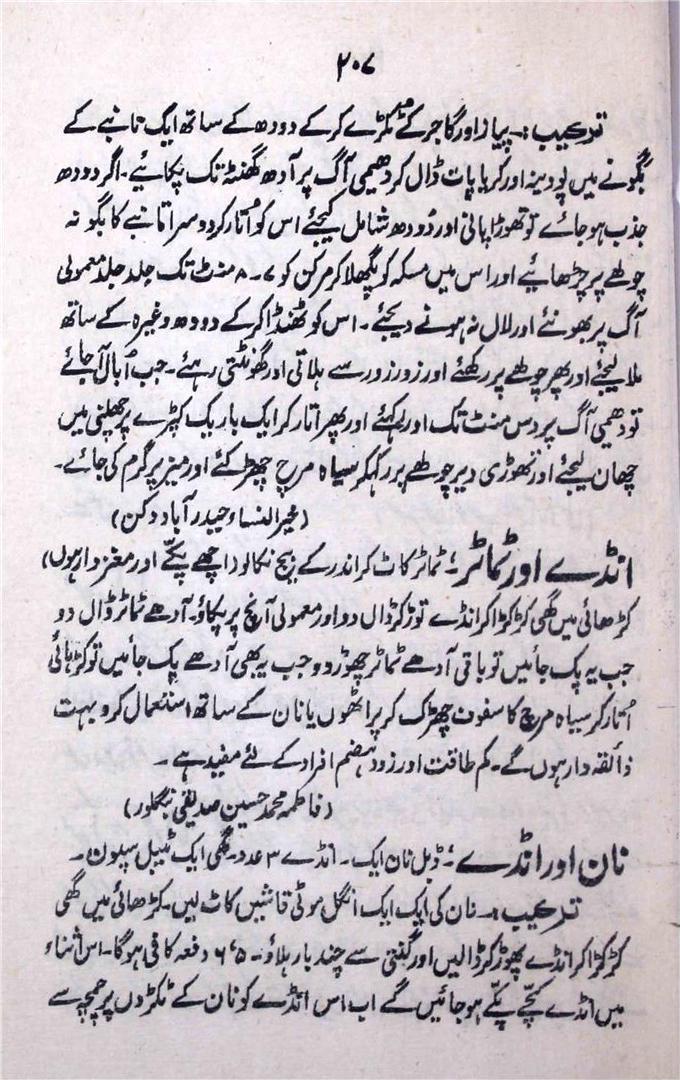 ۲۰۷
ترکیب:۔ پیاز اور گاجر کے ٹکڑے کرکے دودھ کے ساتھ ایک تانبے کے
بگونے میں پودینہ اور کریا پات ڈال کر دھیمی آگ پر آدھ گھنٹہ تک پکائیے۔ اگر دودھ
جذب ہو جائے تو تھوڑا پانی اور دودھ شامل کیجئے اس کو اُتار کر دوسرا تانبے کا بگونہ
چولھے پر چڑھائیے اور اس میں مسکہ کو پگھلا کر مرکن کو ۷۔۸ منٹ تک جلد جلد معمولی
آگ پر بھونئے اور لال نہ ہونے دیجئے۔ اس کو ٹھنڈا کرکے دودھ وغیرہ کے ساتھ
ملا لیجئے اور پھر چولھے پر رکھئے اور زور زور سے ہلاتی اور گھونٹتی رہئے۔ جب اُبال آجائے
تو دھیمی آگ پر دس منٹ تک اور رکھئے اور پھر اتار کر ایک باریک کپڑے پر چھلنی میں
چھان لیجئے اور تھوڑی دیر چولھے پر رکھکر سیاہ مرچ چھڑکئے اور میز پر گرم کی جائے۔
(خیرالنساء حیدرآباد دکن)
انڈے اور ٹماٹر: ٹماٹر کاٹ کر اندر کے بیج نکالو (اچھے پکّے اور مغزدار ہوں)
کڑھائی میں گھی کڑکڑا کر انڈے توڑ کر ڈال دو اور معمولی آنچ پر پکاؤ۔ آدھے ٹماٹر ڈال دو
جب یہ پک جائیں تو باقی آدھے ٹماٹر چھوڑ دو جب یہ بھی آدھے پک جائیں تو کڑہائی
اُتار کر سیاہ مرچ کا سفوف چھڑک کر پراٹھوں یا نان کے ساتھ استعمال کرو بہت
ذائقہ دار ہوں گے۔ کم طاقت اور زود ہضم افراد کے لئے مفید ہے۔
(فاطمہ محمد حسین صدیقی بنگلور)
نان اور انڈے: ڈبل نان ایک۔ انڈے ۳ عدد۔ گھی ایک ٹیبل سپون۔
ترکیب:۔ نان کی ایک ایک انگل موٹی قاشیں کاٹ لیں۔ کڑھائی میں گھی
کڑکڑا کر انڈے پھوڑ کر ڈالیں اور گنتی سے چند بار ہلاؤ۔ ۵، ۶ دفعہ کافی ہوگا۔ اس اثناء
میں انڈے کچّے پکّے ہو جائیں گے اب اس انڈے کو نان کے ٹکڑوں پر چمچہ سے